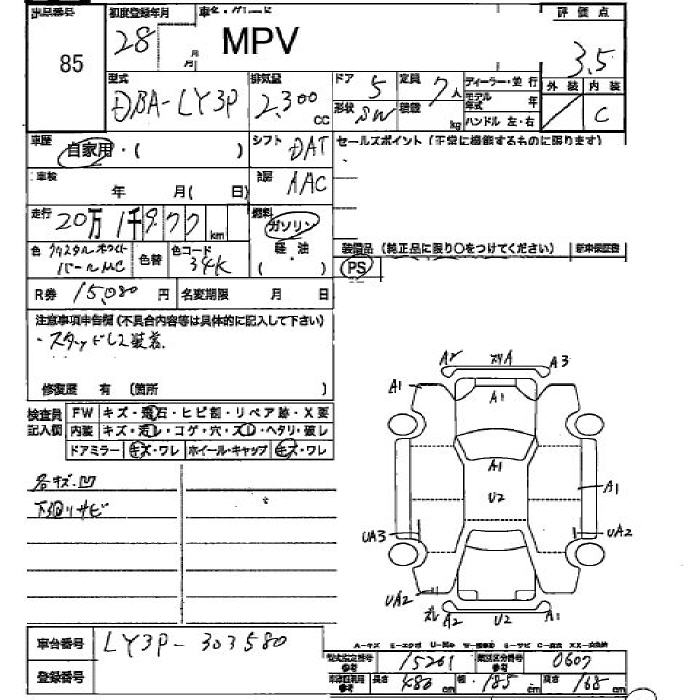 出品番号 初度登録年月 車名・グレード 評価点
85 28 月 MPV 3.5
型式 排気量 ドア 5 定員 7人 ディーラー・並行 外装 内装
DBA-LY3P 2,300cc 形状 SW 積載 kg モデル年式 年 ハンドル 左・右 C
車歴 自家用・( ) シフト DAT セールスポイント (正常に機能するものに限ります)
車検 年 月( 日) AAC
走行 20万1千9 77 km 燃料 ガソリン・軽油 ( )
装備品 (純正品に限り○をつけてください) 新車保証書
色 クリスタルホワイトパールMC 色替 色コード 34K PS
R券 15,080円 名変期限 月 日
注意事項申告欄 (不具合内容等は具体的に記入して下さい)
・スタッドレス装着
修復歴 有 (箇所 )
検査員記入欄 FW キズ・飛石・ヒビ割・リペア跡・X要
内装 キズ・汚レ・コゲ・穴・スレ・ヘタリ・破レ
ドアミラー キズ・ワレ ホイール・キャップ キズ・ワレ
各キズ凹
下廻りサビ
A2 A A3
A1 A1
A1
U2 A1
UA3 UA2
UA2 A2 U2 A1
車台番号 LY3P-303580
登録番号
型式指定番号 参考 15261 類別区分番号 参考 0607
長さ 486 cm 幅 185 cm 高さ 168 cm